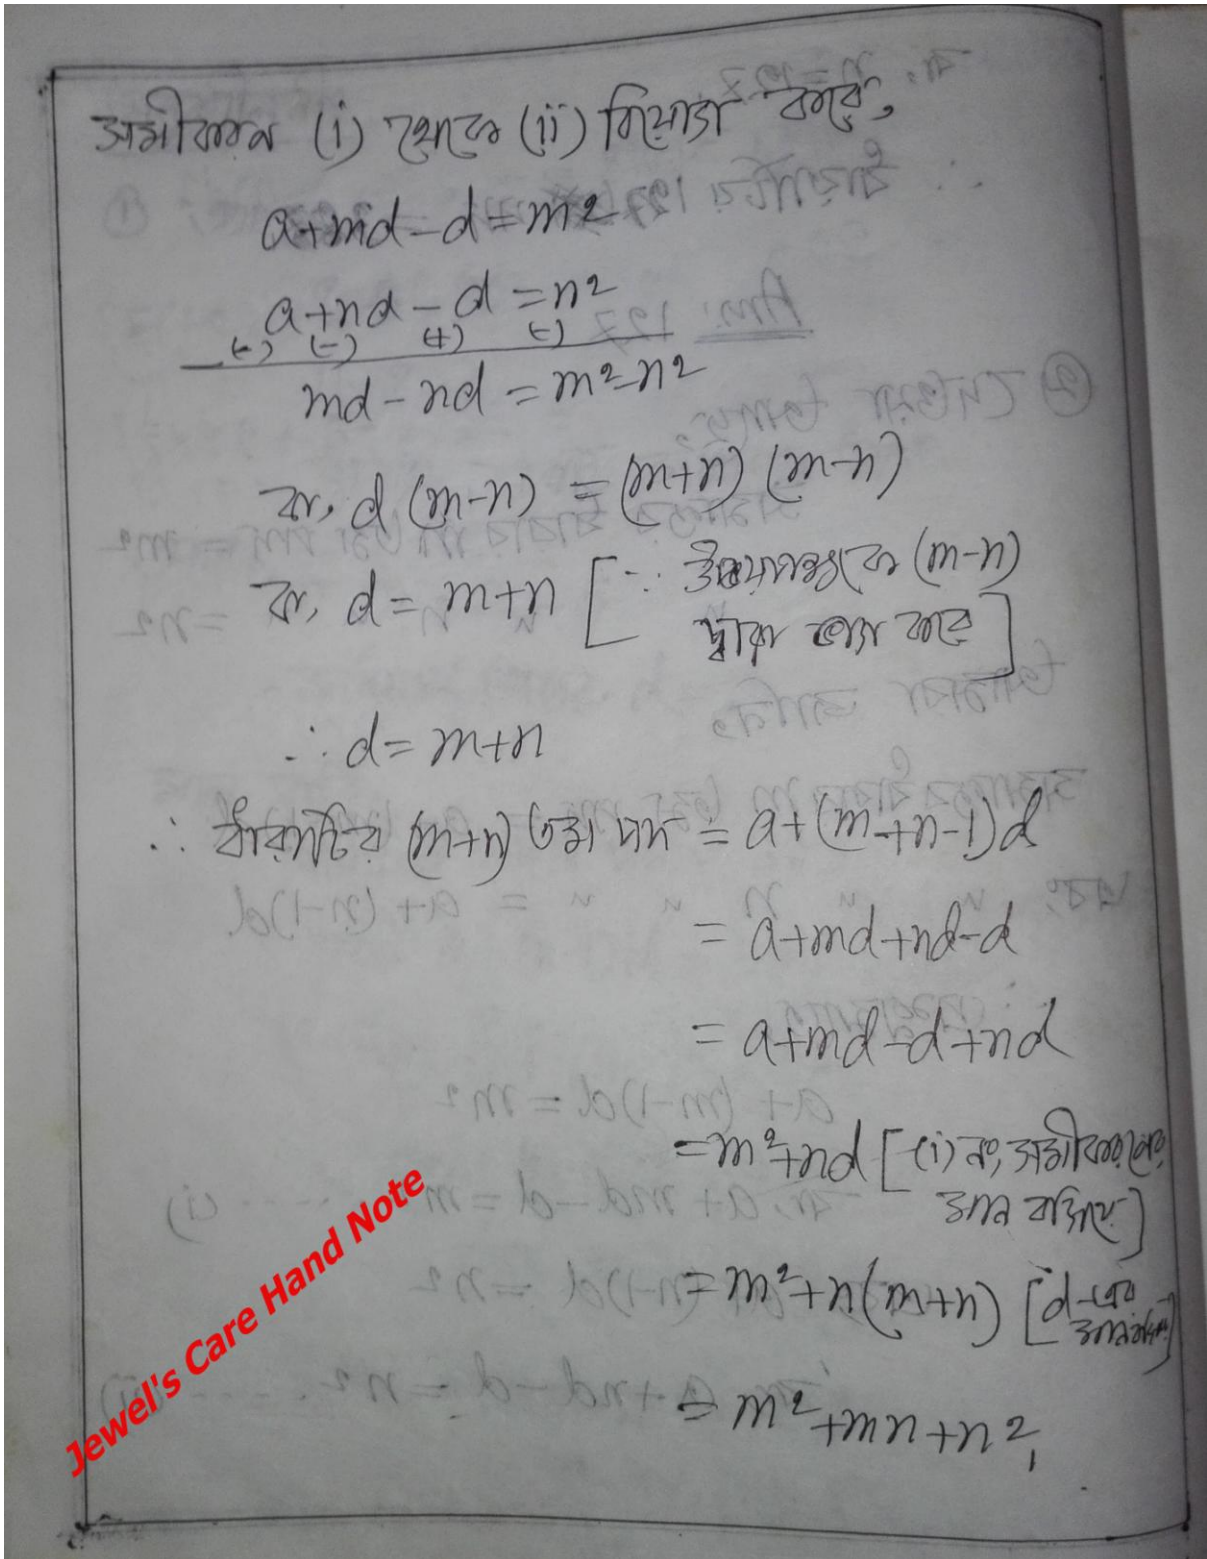 সমীকরন (i) থেকে (ii) বিয়োগ করে,
a+md-d=m²
a+nd-d=n²
(-) (-) (+) (-)
md-nd=m²-n²
বা, d(m-n) = (m+n) (m-n)
বা, d= m+n [∵ উভয়পক্ষকে (m-n)
দ্বারা ভাগ করে]
∴ d= m+n
∴ ধারাটির (m+n) তম পদ = a+(m+n-1)d
= a+md+nd-d
= a+md-d+nd
=m²+nd [(i) নং সমীকরনের
মান বসিয়ে]
=m²+n(m+n) [d-এর
= m²+mn+n²,
Jewel's Care Hand Note